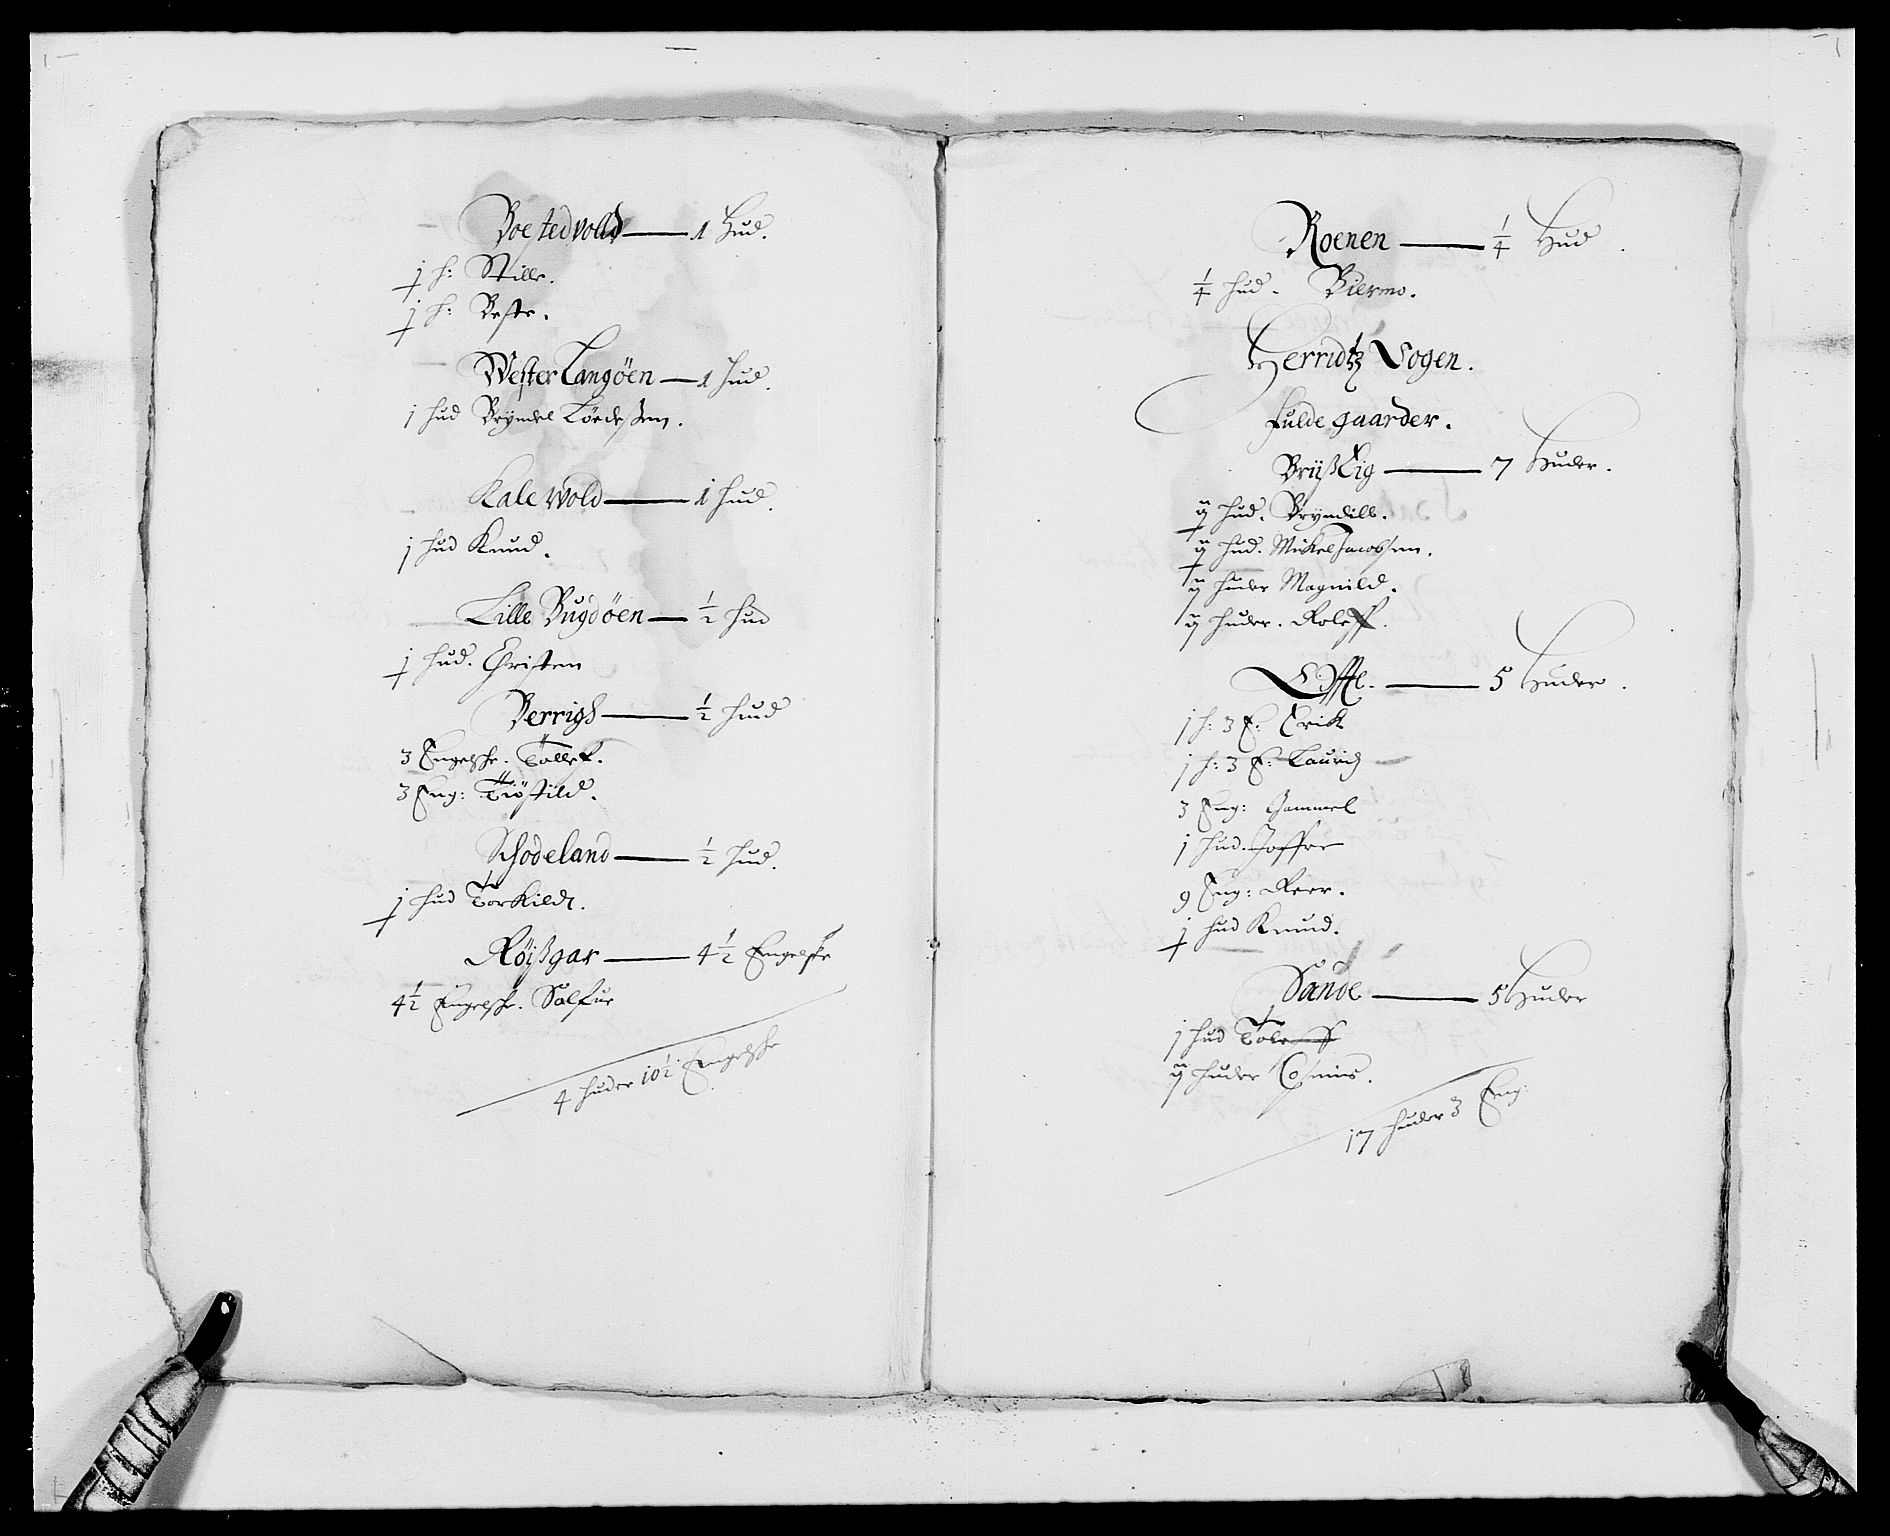 Boestedvold — 1 Hud.
j h: Stille.
j h: Beste.
Wester Langöen — 1 Hud.
j hud Bryndel Lördeßen.
Kale wold — 1 Hud.
j hud Knud.
Lille Bugdöen — ½ hud
j hud. Christen
Berrigh — ½ hud
3 Engelske. Tollef.
3 Eng: Tiöstild.
Schodeland — ½ hud.
j hud Torkildt.
Röißgar — 4½ Engelske
4½ Engelske. Salfue
4 huder 10½ Engelske
Roenen — ¼ Hud.
¼ hud. Biermo.
Herridtz Sogen.
fulde gaarder.
Brüßlig — 7 Huder.
ij hud. Bryndill.
ij hud. Mickel Jacobsen.
ij huder Magnild.
ij huder. Roleff.
— 5 Huder.
j h: 3 E: Erik
j h: 3 E: Laurids
3 Eng: Gammel
j hud. Joffre
9 Eng: Reer.
j hud Knud.
Sande — 5 Huder
j hud Toleff
ij huder
17 huder 3 Eng: